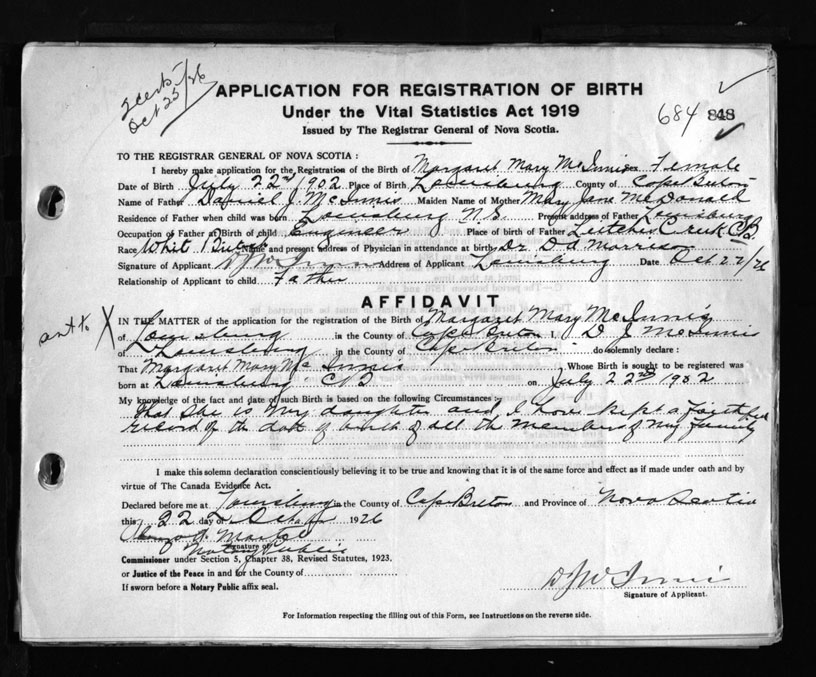 2 certs
Oct 25/26
APPLICATION FOR REGISTRATION OF BIRTH
Under the Vital Statistics Act 1919
684 848
Issued by The Registrar General of Nova Scotia.
TO THE REGISTRAR GENERAL OF NOVA SCOTIA :
I hereby make application for the Registration of the Birth of Margaret Mary McInnis Sex Female
Date of Birth July 22nd 1902 Place of Birth Louisburg County of Cape Breton
Name of Father Daniel J McInnis Maiden Name of Mother Mary Jane McDonald
Residence of Father when child was born Louisburg N.S. Present address of Father Louisburg
Occupation of Father at Birth of child Engineer Place of birth of Father Leitches Creek CB
Race Whit Name and present address of Physician in attendance at birth Dr. D A Morrison
Signature of Applicant D J McInnis Address of Applicant Louisburg Date Oct 22/26
Relationship of Applicant to child Father
AFFIDAVIT
X IN THE MATTER of the application for the registration of the Birth of Margaret Mary McInnis
of Louisburg in the County of Cape Breton I, D J McInnis
of Louisburg in the County of Cape Breton do solemnly declare :
That Margaret Mary McInnis Whose Birth is sought to be registered was
born at Louisburg CB on July 22nd 1902
My knowledge of the fact and date of such Birth is based on the following Circumstances
That she is my daughter and I have kept a faithful
record of the date of birth of all the members of my family
I make this solemn declaration conscientiously believing it to be true and knowing that it is of the same force and effect as if made under oath and by
virtue of The Canada Evidence Act.
Declared before me at Louisburg in the County of Cape Breton and Province of Nova Scotia
this 22 day of 1926
Signature of
Notary Public
Commissioner under Section 5, Chapter 38, Revised Statutes, 1923.
or Justice of the Peace in and for the County of
If sworn before a Notary Public affix seal.
D J McInnis
Signature of Applicant.
For Information respecting the filling out of this Form, see Instructions on the reverse side.